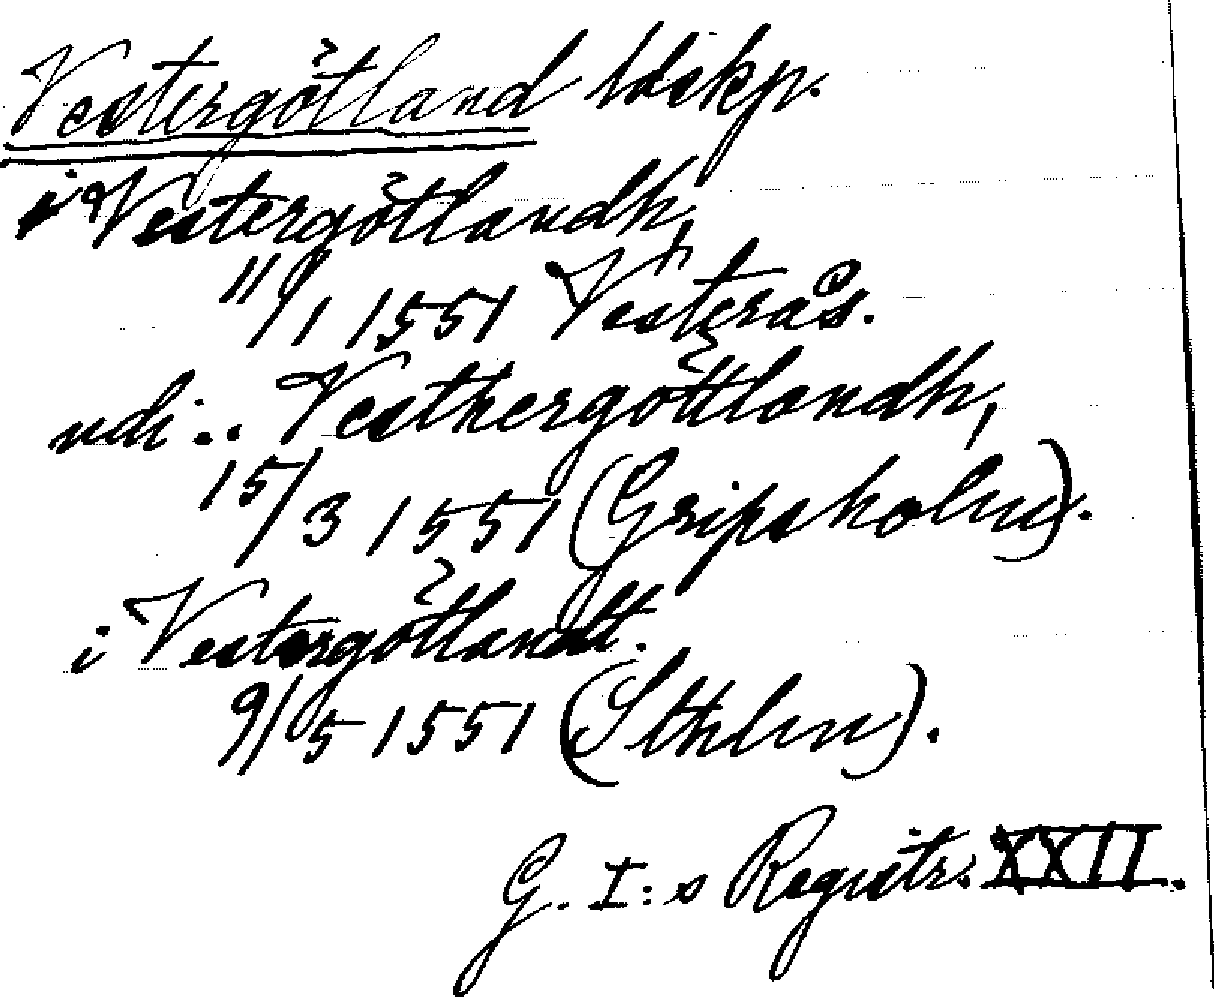 Vestergötland ldskp.
i Vestergötlandh,
11/1 1551 Vesterås.
udi .. Vesthergöttlandh,
15/3 1551 (Gripsholm).
i Vestergötlandt.
9/5 1551 (Sthlm).
G. I:s Registr. XXII.